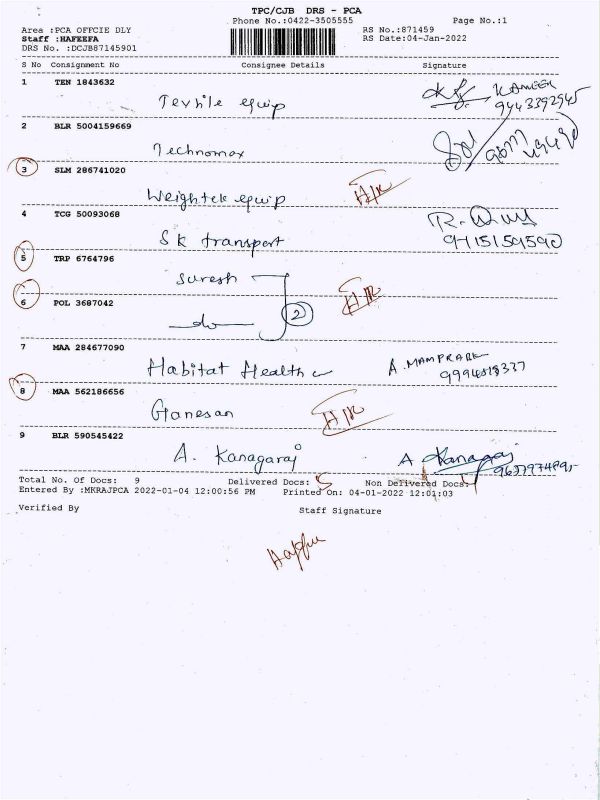 TPC/CJB DRS - PCA
Phone No.:0422-3505555 Page No.:1
Area :PCA OFFCIE DLY RS No.:871459
Staff :HAFEEFA RS Date:04-Jan-2022
DRS No. :DCJB87145901
S No Consignment No Consignee Details Signature
1 TEN 1843632
Textile equip KAMEEK
9443392945
2 BLR 5004159669
Technomax
3 SLM 286741020
Weightek equip H/R
4 TCG 50093068
SK transport 9715159590
5 TRP 6764796
Suresh
6 POL 3687042 H/R
do 2
7 MAA 284677090
Habitat Health A. MAMPRARK
8 MAA 562186656
Ganesan H/R
9 BLR 590545422
A. Kanagaraj A Kanagaraj
Total No. Of Docs: 9 Delivered Docs: 5 Non Delivered Docs: 4
Entered By :MKRAJPCA 2022-01-04 12:00:56 PM Printed On: 04-01-2022 12:01:03
Verified By Staff Signature